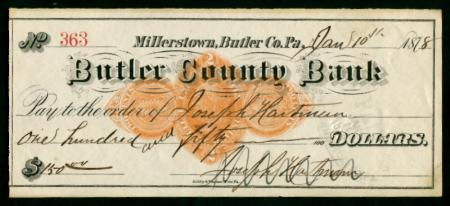 No 363 Millerstown, Butler Co. Pa. Jan'y 10th 1878
Butler County Bank
Pay to the order of Joseph Hartman
One hundred and fifty 100 DOLLARS.
$150.00 Joseph Hartman